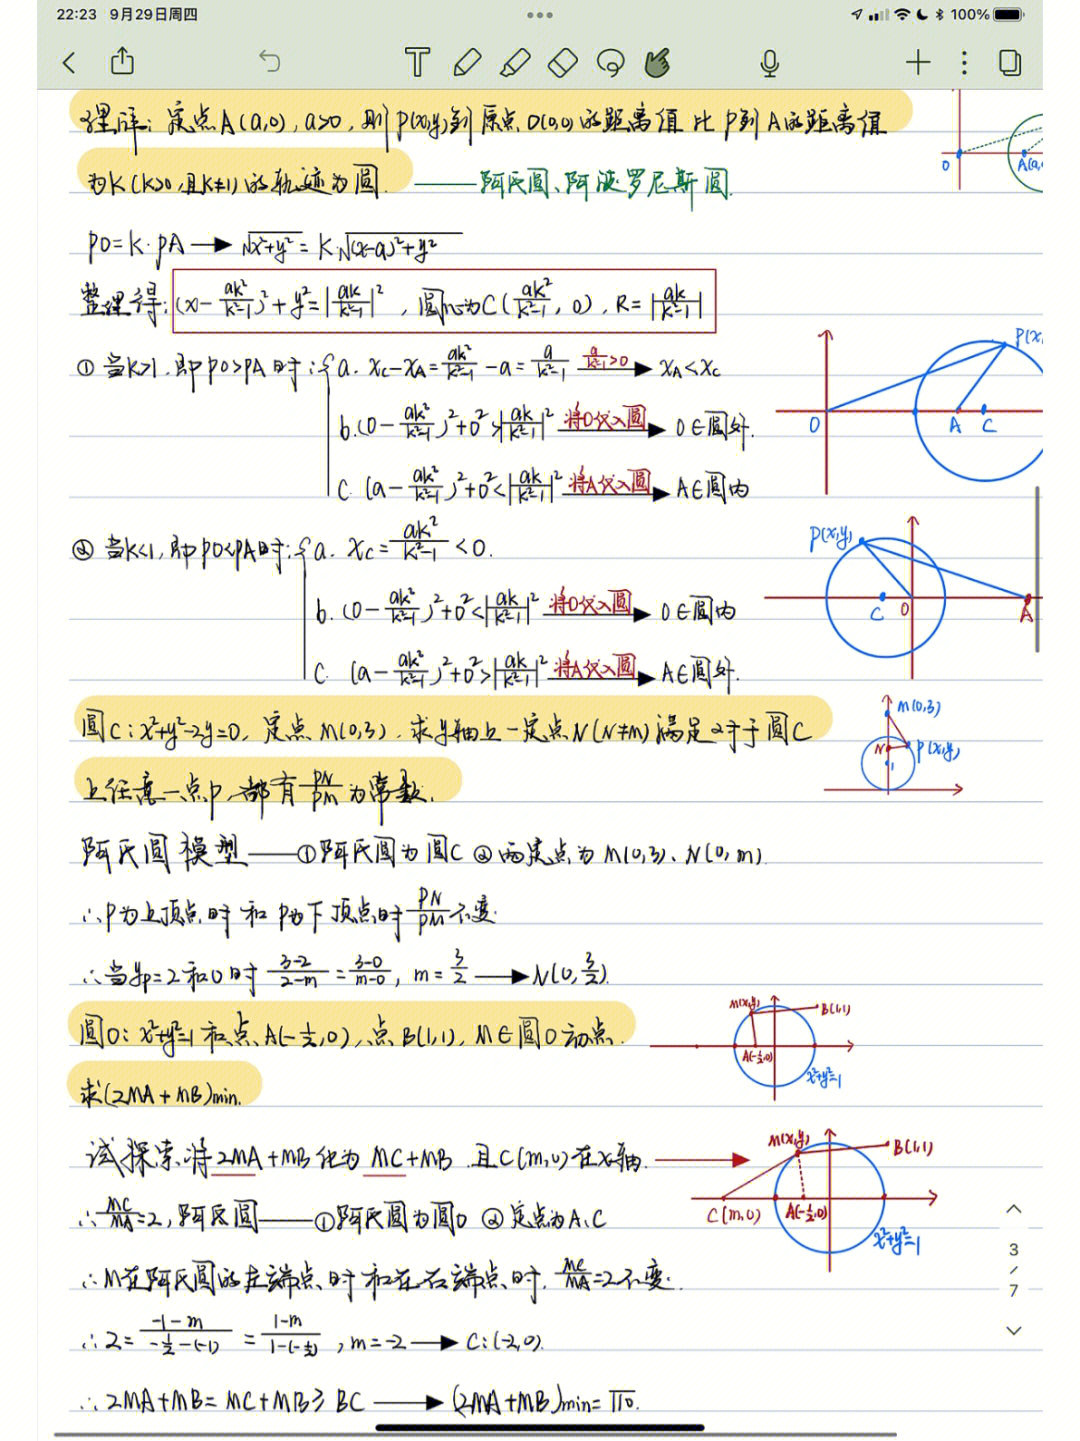 22:23 9月29日周四
100%
理解:定点A(a,0),a>0,则P(x,y)到原点O(0,0)的距离值比P到A的距离值
为K(K>0且K≠1)的轨迹为圆. ——阿氏圆、阿波罗尼斯圆.
O
PO=K·PA→√x²+y²=K·√(x-a)²+y²
整理得:(x-ak²/k²-1)²+y²=|ak/k²-1|²,圆心为C(ak²/k²-1,0),R=|ak/k²-1|
①当K>1,即PO>PA时:{a. xC-xA=ak²/k²-1-a=a/k²-1 a/k²-1>0→xA<xC
b.(0-ak²/k²-1)²+0²>|ak/k²-1|² 将O代入圆→O∈圆外.
C.(a-ak²/k²-1)²+0²<|ak/k²-1|² 将A代入圆→A∈圆内
O A C
②当K<1,即PO<PA时:{a. xC=ak²/k²-1<0.
b.(0-ak²/k²-1)²+0²<|ak/k²-1|² 将O代入圆→O∈圆内
C.(a-ak²/k²-1)²+0²>|ak/k²-1|² 将A代入圆→A∈圆外.
P(x,y)
C O A
圆C:x²+y²-2y=0,定点M(0,3),求y轴上一定点N(N≠M)满足对于圆C
上任意一点P,都有PN/PM为常数.
M(0,3)
N P(x,y)
1
阿氏圆模型——①阿氏圆为圆C ②两定点为M(0,3)、N(0,m)
∴P为上顶点时和P为下顶点时PN/PM不变.
∴当yP=2和0时 3-2/2-m=3-0/m-0,m=3/2→N(0,3/2).
圆O:x²+y²=1和点A(-1/2,0),点B(1,1),M∈圆O动点.
求(2MA+MB)min.
M(x,y) B(1,1)
A(-1/2,0)
x²+y²=1
试探索,将2MA+MB化为MC+MB,且C(m,0)在x轴.
M(x,y) B(1,1)
C(m,0) A(-1/2,0)
x²+y²=1
∴MC/MA=2,阿氏圆——①阿氏圆为圆O ②定点为A、C
∴M在阿氏圆的左端点时和在右端点时,MC/MA=2不变.
∴2=-1-m/-1/2-(-1)=1-m/1-(-1/2),m=-2→C:(-2,0).
∴2MA+MB=MC+MB≥BC→(2MA+MB)min=√10.
3
/
7